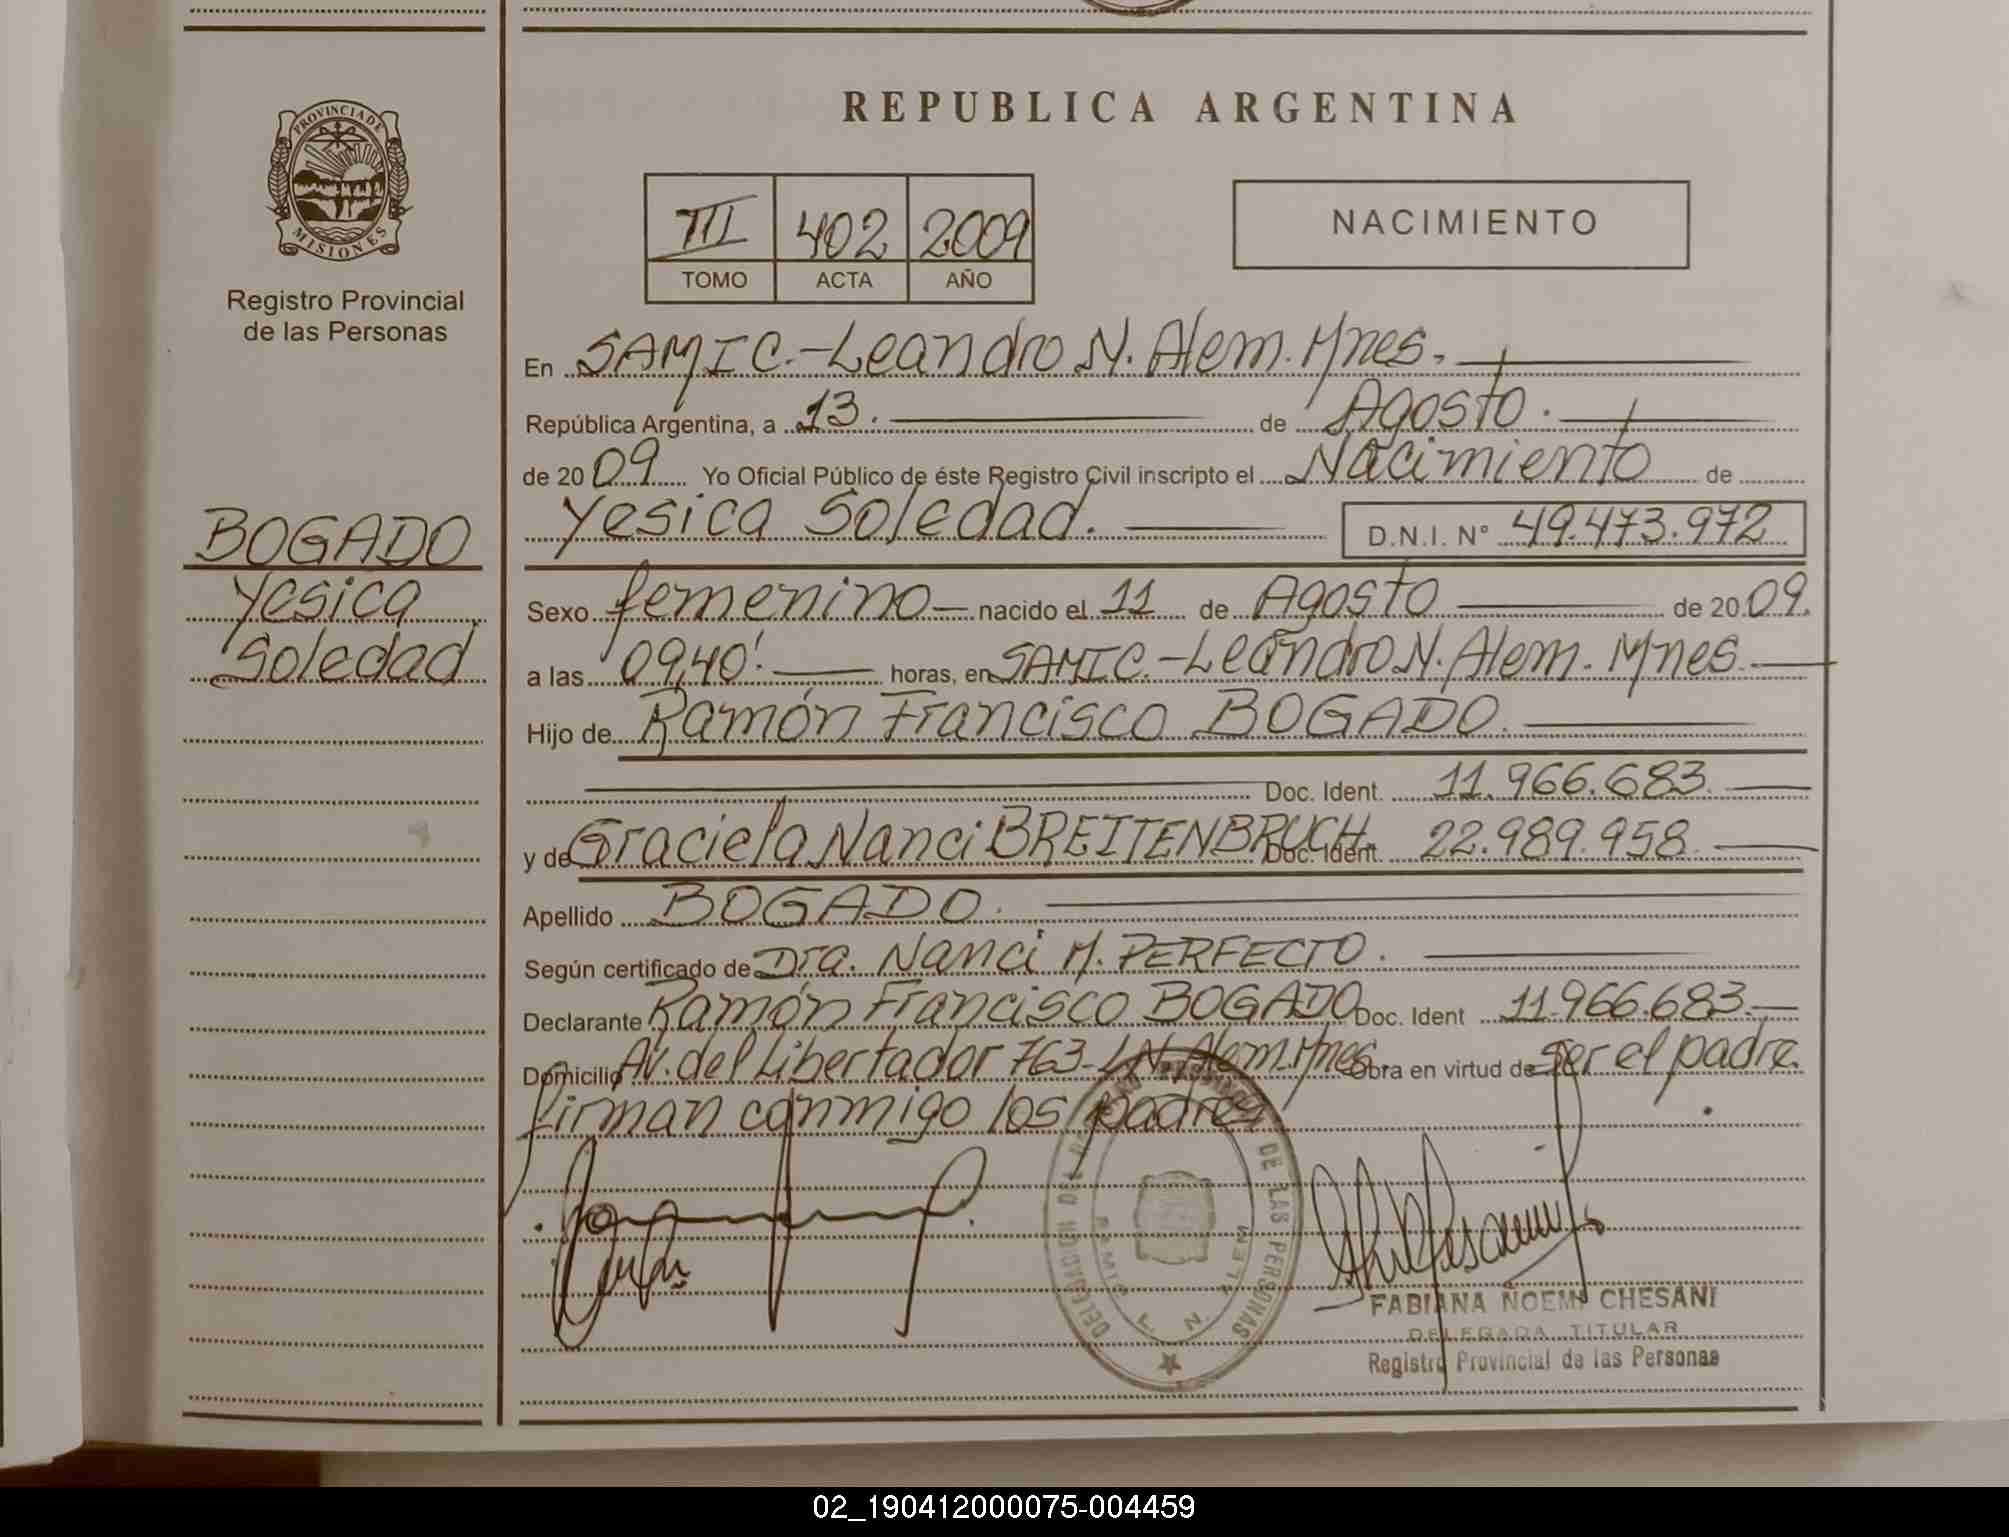 PROVINCIA DE
MISIONES
Registro Provincial
de las Personas
BOGADO
Yesica
Soledad
REPUBLICA ARGENTINA
III 402 2009
TOMO ACTA AÑO
NACIMIENTO
En SAMIC.-Leandro N. Alem. Mnes.
República Argentina, a 13. de Agosto.
de 20 09 Yo Oficial Público de éste Registro Civil inscripto el Nacimiento de
Yesica Soledad. D.N.I. Nº 49.473.972
Sexo femenino nacido el 11 de Agosto de 20 09.
a las 09,40'. horas, en SAMIC.-Leandro N. Alem. Mnes.
Hijo de Ramón Francisco BOGADO.
Doc. Ident. 11.966.683.
y de Graciela Nanci BREITENBRUCH. Doc. Ident. 22.989.958
Apellido BOGADO.
Según certificado de Dra. Nanci M. PERFECTO.
Declarante Ramón Francisco BOGADO Doc. Ident 11.966.683.
Domicilio Av. del Libertador 763-L.N. Alem. Mnes. Obra en virtud de ser el padre.
firman conmigo los padres
DE LAS PERSONAS
L. N. ALEM
FABIANA NOEMI CHESANI
DELEGADA TITULAR
Registro Provincial de las Personas
02_190412000075-004459